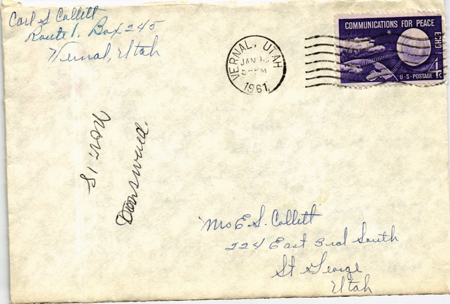 Carl S Collett
Route 1. Box 245
Vernal, Utah
VERNAL, UTAH
JAN
PM
1961
COMMUNICATIONS FOR PEACE
ECHO I
U·S·POSTAGE 4¢
Nov 15
Mrs E. S. Collett
224 East 3rd South
St George
Utah